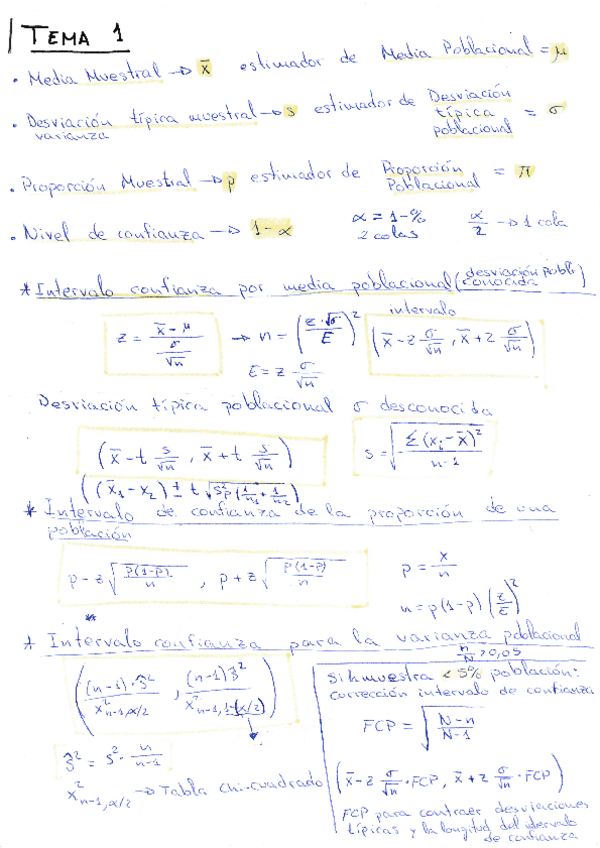 TEMA 1
• Media Muestral → x̄ estimador de Media Poblacional = μ
• Desviación típica muestral → s estimador de Desviación típica poblacional = σ
varianza
• Proporción Muestral → p estimador de Proporción Poblacional = π
• Nivel de confianza → 1-α α = 1-% 2 colas α/2 → 1 cola
* Intervalo confianza por media poblacional (desviación pobl. conocida)
intervalo
z = (x̄ - μ) / (σ/√n) → n = (z·√σ / E)² (x̄ - z σ/√n , x̄ + z σ/√n)
E = z · σ/√n
Desviación típica poblacional σ desconocida
(x̄ - t s/√n , x̄ + t s/√n) s = √(Σ(xᵢ - x̄)² / n-1)
((x̄₁ - x̄₂) ± t √(s²p(1/n₁ + 1/n₂))
* Intervalo de confianza de la proporción de una
población
p - z √(p(1-p)/n) , p + z √(p(1-p)/n) p = x/n
n = p(1-p) (z/E)²
**
* Intervalo confianza para la varianza poblacional
n/N > 0,05
((n-1)·ŝ² / x²ₙ₋₁,α/2 , (n-1)ŝ² / x²ₙ₋₁,1-(α/2))
Si la muestra < 5% población:
corrección intervalo de confianza
FCP = √(N-n / N-1)
ŝ² = s² · n/n-1
x²ₙ₋₁,α/2 → Tabla chi-cuadrado
(x̄ - z σ/√n · FCP, x̄ + z σ/√n · FCP)
FCP para contraer desviaciones
típicas y la longitud del intervalo
de confianza